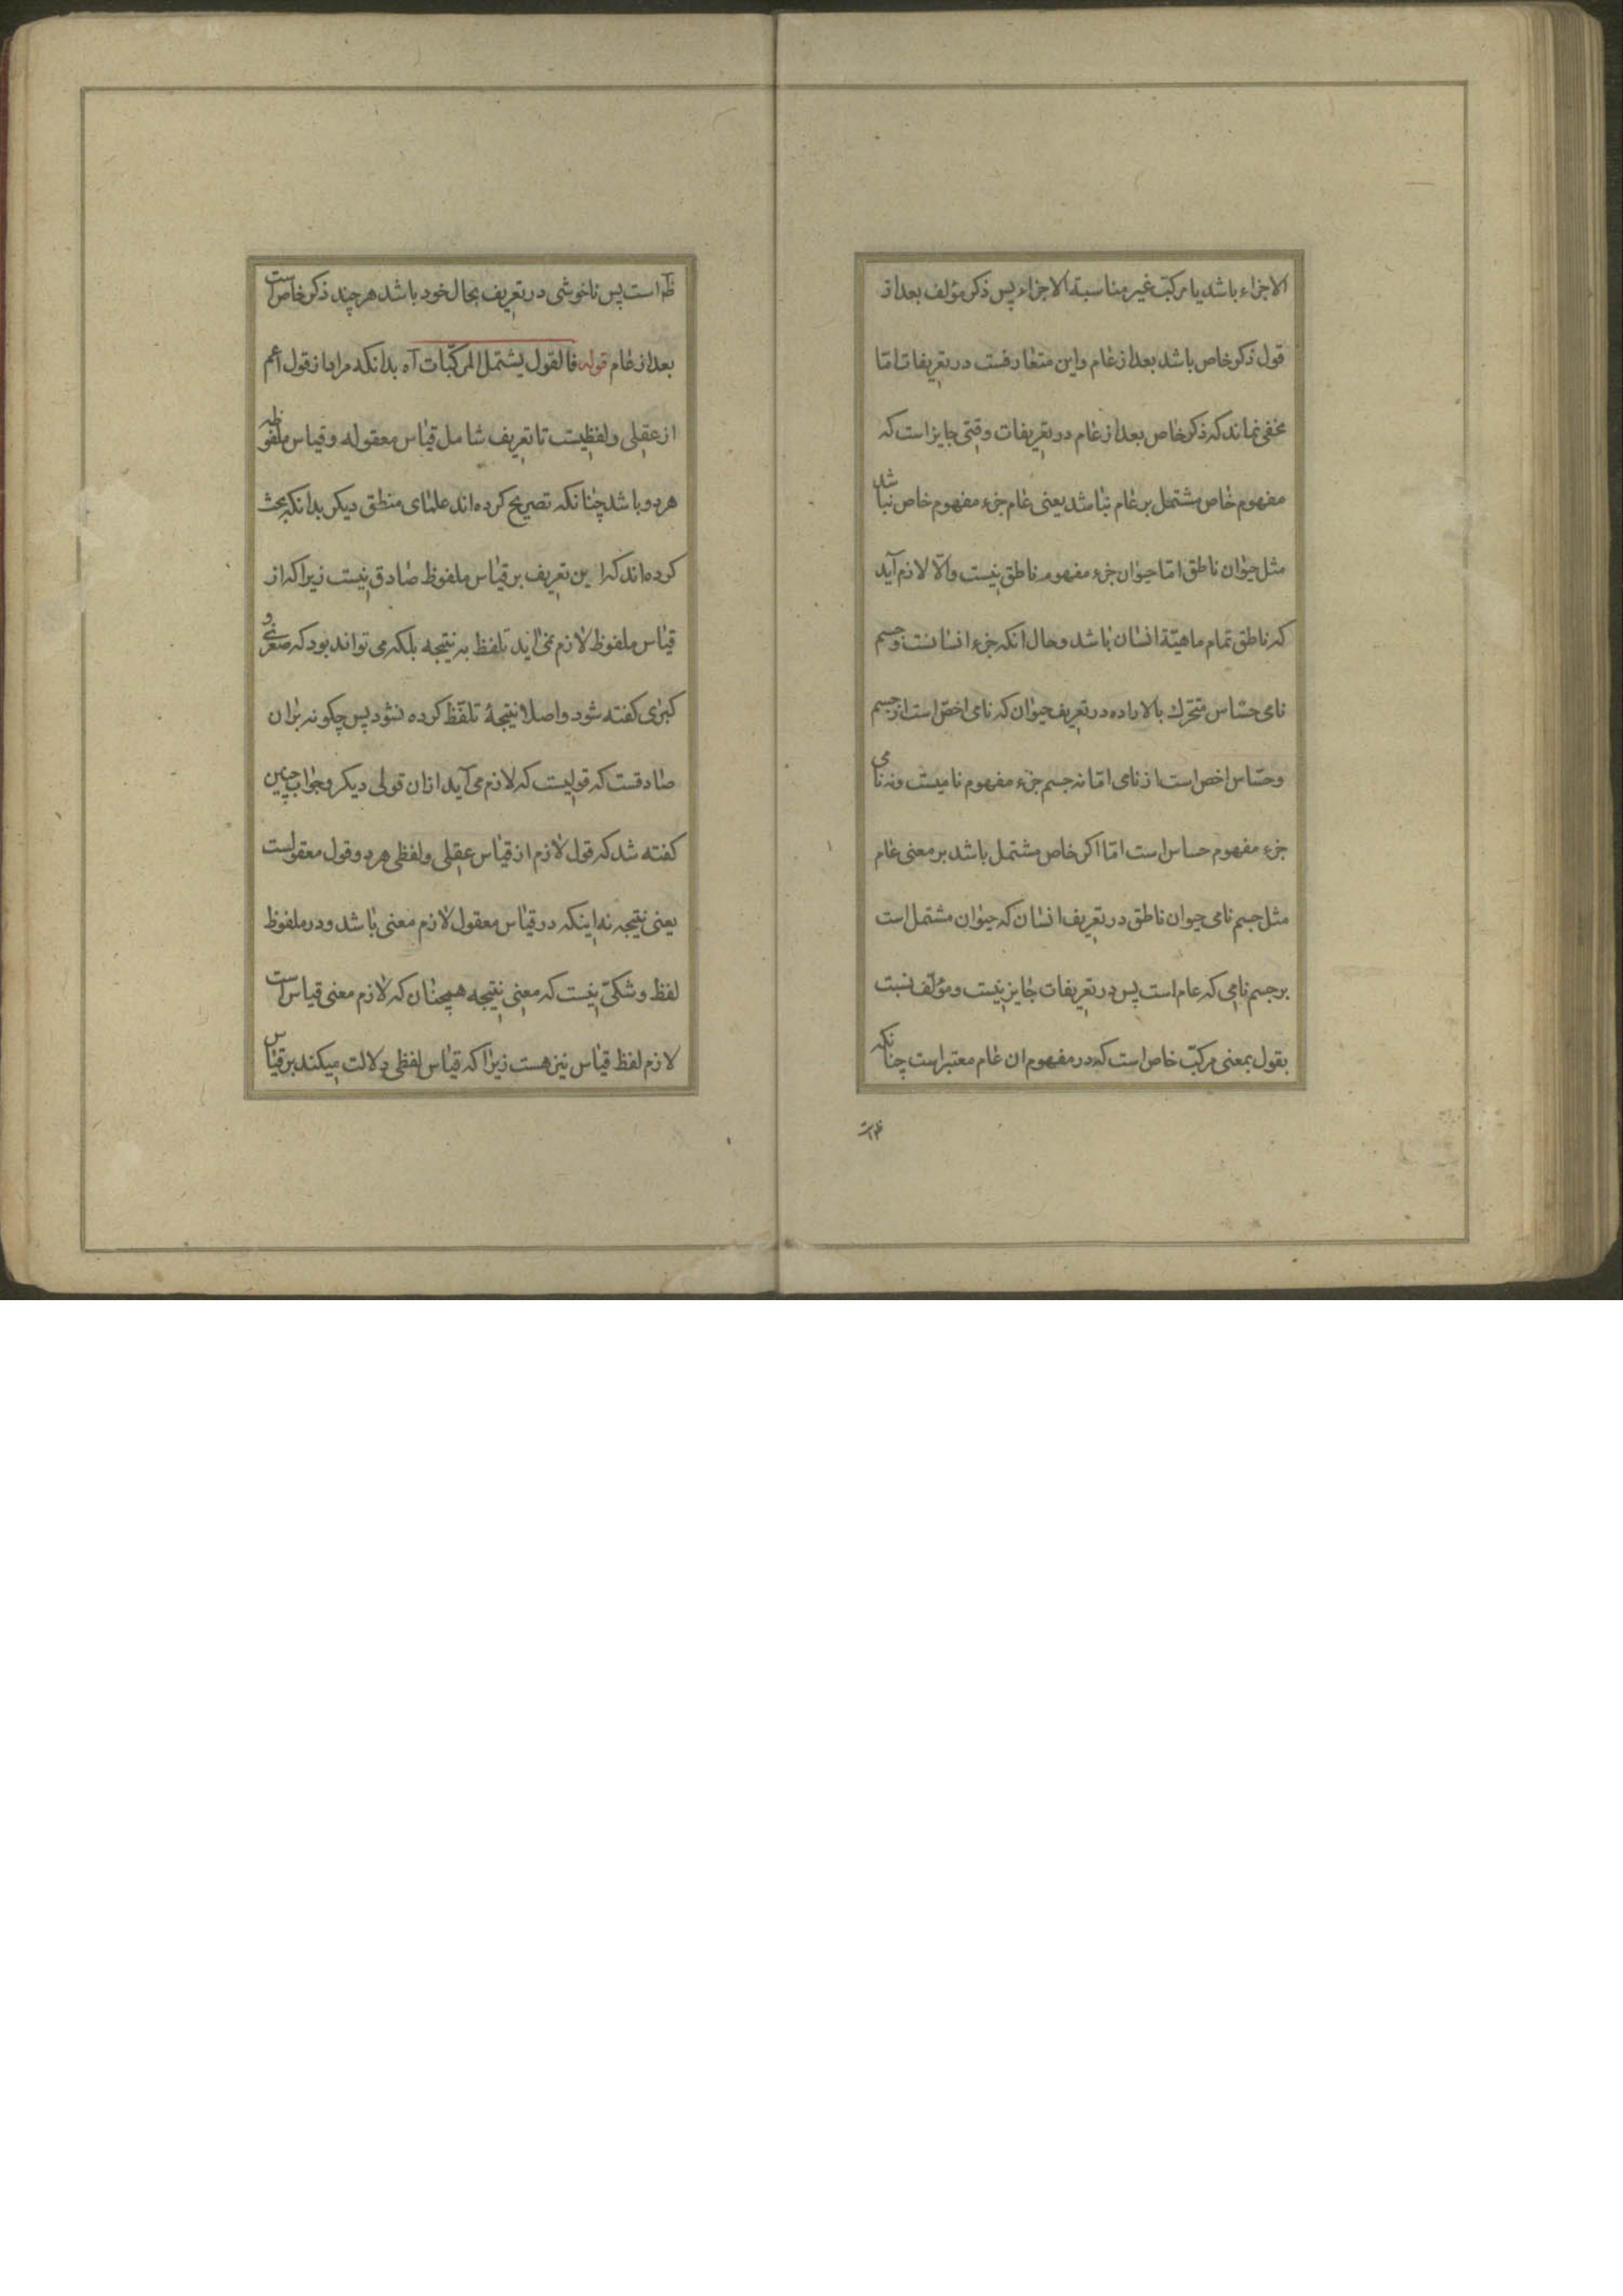 الاجزاء باشد یا مرکب غیر مناسبة الاجزاء پس ذکر مؤلف بعد از
قول ذکر خاص باشد بعد از عام واین متعارفست در تعریفات امّا
مخفی نماند که ذکر خاص بعد از عام در تعریفات وقتی جایز است که
مفهوم خاص مشتمل بر عام نباشد یعنی عام جزء مفهوم خاص نباشد
مثل حیوان ناطق امّا حیوان جزء مفهوم ناطق نیست والّا لازم آید
که ناطق تمام ماهیّة انسان باشد وحال انکه جزء انسانست وجسم
نامی حسّاس متحّرک بالاراده در تعریف حیوان که نامی اخصّ است از جسم
وحسّاس اخص است از نامی امّا نه جسم جزء مفهوم نامیست ونه نامی
جزء مفهوم حساس است امّا اکر خاص مشتمل باشد بر معنی عام
مثل جسم نامی حیوان ناطق در تعریف انسان که حیوان مشتمل است
بر جسم نامی که عام است پس در تعریفات جایز نیست ومؤلّف نسبت
بقول بمعنی مرکبّ خاص است که در مفهوم ان عام معتبر است چنانکه
ظ است پس ناخوشی در تعریف بحال خود باشد هر چند ذکر خاص است
بعد از عام قوله فالقول یشتمل المرکّبات آه بدانکه مراد از قول أعم
از عقلی ولفظیست تا تعریف شامل قیاس معقوله وقیاس ملفوظه
هر دو باشد چنانکه تصریح کرده‌اند علمای منطق دیکر بدانکه بحث
کرده‌اند که این تعریف بر قیاس ملفوظ صادق نیست زیرا که از
قیاس ملفوظ لازم نمی‌اید تلفظ به نتیجه بلکه می تواند بود که صغری و
کبری کفته شود واصلا نتیجۀ تلفّظ کرده نشود پس چکونه بران
صادقست که قولیست که لازم می آید ازان قولی دیکر وجواب چنین
کفته شد که قول لازم از قیاس عقلی ولفظی هر دو قول معقولست
یعنی نتیجه نه اینکه در قیاس معقول لازم معنی باشد ودر ملفوظ
لفظ وشکّی نیست که معنی نتیجه همچنان که لازم معنی قیاس است
لازم لفظ قیاس نیز هست زیرا که قیاس لفظی دلالت میکند بر قیاس